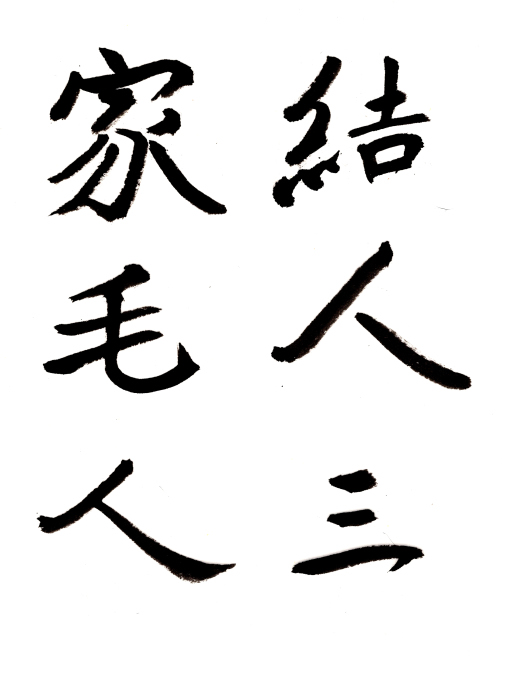 結人三
家毛人